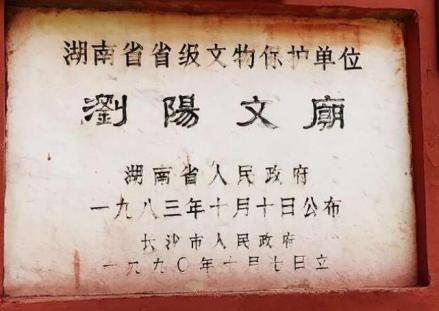 湖南省省级文物保护单位
瀏陽文廟
湖南省人民政府
一九八三年十月十日公布
长沙市人民政府
一九九〇年十月七日立